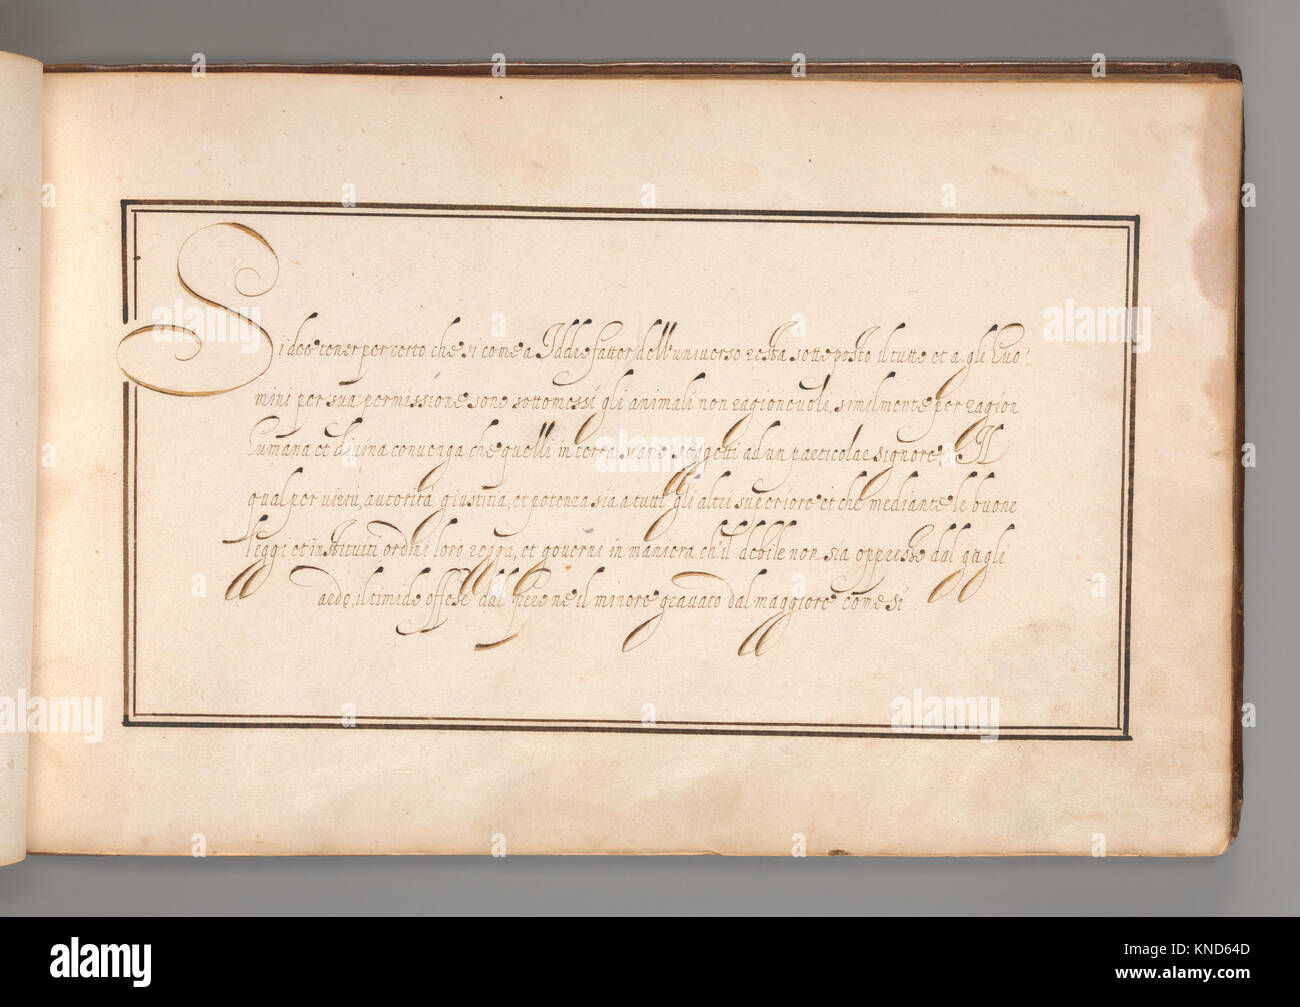 Si dee tener per certo che si come a Iddio fattor dell'universo resta sottoposto il tutto et a gli huo:
mini per sua permissione sono sottomessi gli animali non ragionevoli, similmente per ragion
humana et divina convenga che quelli in terra siano soggetti ad un particolar signore. Il
qual per virtù, autorità, giustitia, et potenza sia a tutti gli altri superiore et che mediante le buone
leggi et instituiti ordini loro regga, et governi in maniera ch'il debile non sia oppresso dal gagli
ardo, il timido offeso dal fiero ne il minore gravato dal maggiore come si
alamy
Image ID: KND64D
www.alamy.com